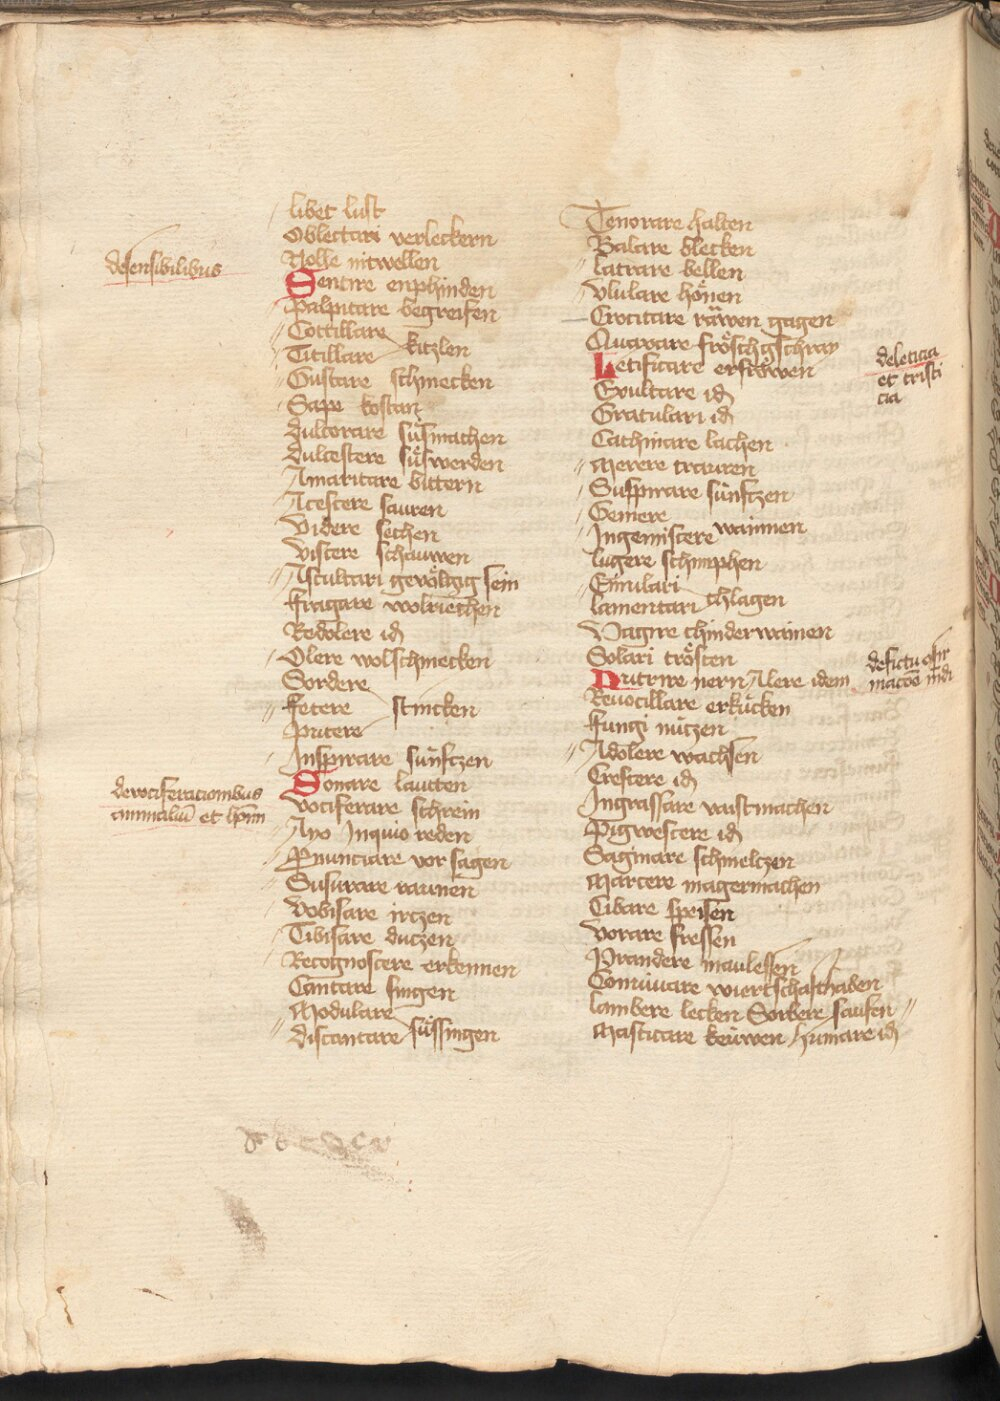 libet lust
Oblectari verleckern
Nolle nitwellen
desensibilibus
Sentire enphinden
Palpitare begreifen
Cottillare
Titillare kitzlen
Gustare schmecken
Sape kostan
dulcorare süsmachen
dulcescere süswerden
Amaritare bittern
Acescere sauren
Videre sechen
Viscere schauwen
Ascultari gevölgig sein
fragare wolriechen
Redolere id
Olere wolschmecken
Sordere
fetere stincken
putere
Inspirare sünfczen
Sonare lautten
devociferationibus
animaliū et hoīm
Vociferare schrein
Ayo Inquio reden
Pnunctiare vor sagen
Susurare raunen
Vobisare irczen
Tibisare duczen
Recognoscere erkennen
Cantare singen
Modulare
discantare süssingen
Tenorare halten
Balare blecken
latrare bellen
Vlulare hönen
Crocitare räwen gagen
Quaxare fröschgschray
Letificare erfräwen
deleticia
et tristi
cia
Exultare id
Gratulari id
Cachinare lachen
Merere trauren
Suspirare sünftzen
Gemere
Ingemiscere wainnen
lugere schimphen
Emulari
lamentari chlagen
Vagire chinderwainen
Solari trösten
Nutrire nern Alere idem
Revocillare erkücken
fungi nützen
Adolere wachsen
Crescere id
Ingrassare vaistmachen
Pigwescere id
Saginare schmeltzen
Marcere magermachen
Cibare speisen
Vorare fressen
Prandere maulessen
Conuiuare wiertschafthaben
lambere lecken Sorbere saufen
Masticare keuwen humare id